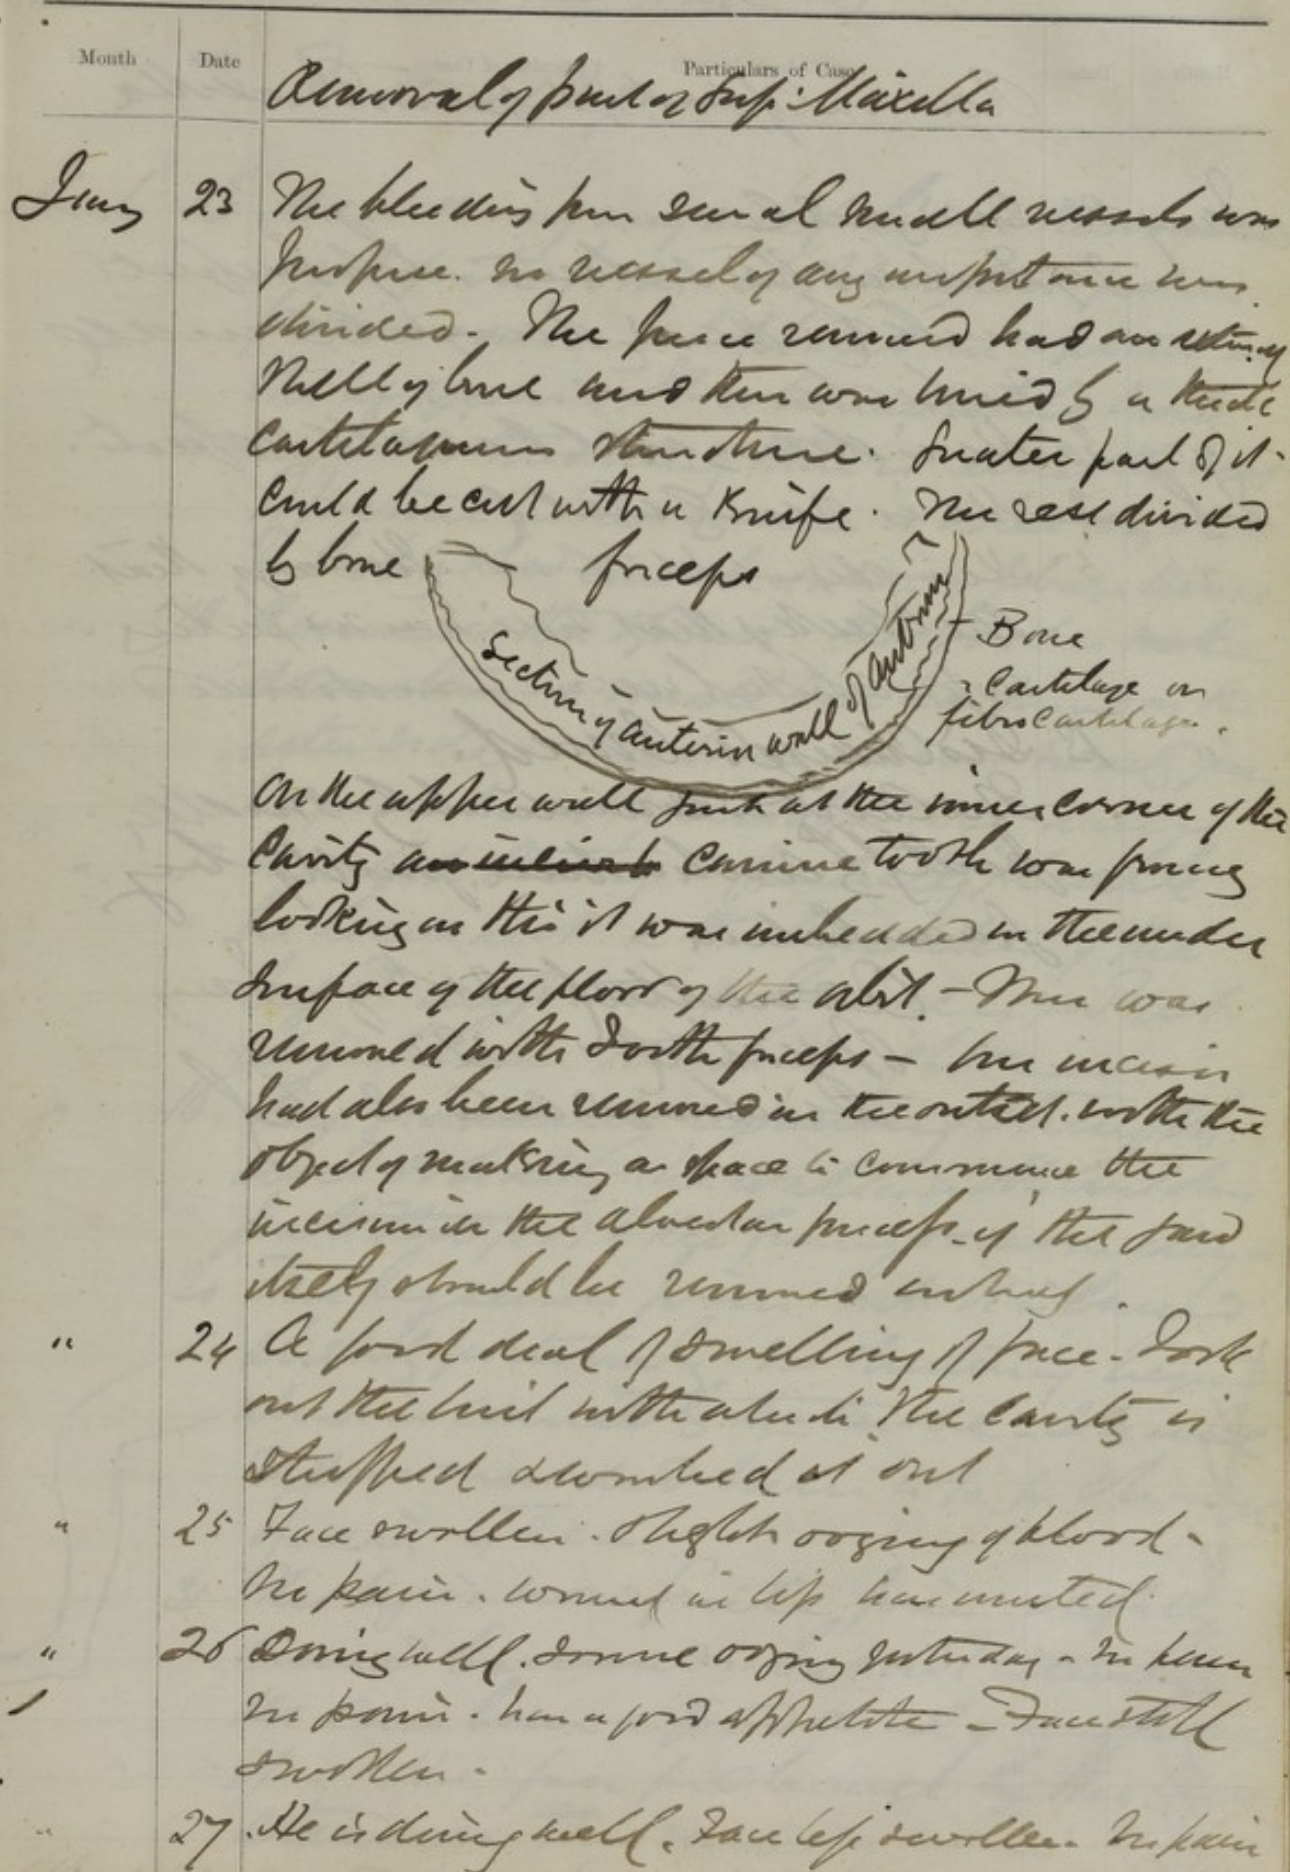 Month Date Particulars of Case
Removal of part of Sup: Maxilla
Jany 23 The bleeding from several small vessels was
profuse. no vessel of any importance was
divided. The piece removed had an external
shell of bone and then was lined by a thick
cartilaginous structure. Greater part of it
could be cut with a Knife. The rest divided
by bone forceps
Section of anterior wall of antrum
Bone
Cartilage or
fibro Cartilage.
On the upper wall just at the inner corner of the
cavity canine tooth was found
looking in this it was imbedded in the under
surface of the floor of the orbit. - This was
removed with Tooth forceps - One incisor
had also been removed in the outset. with the
object of making a space to commence the
incision in the alveolar process if the jaw
itself should be removed
" 24 A good deal of swelling of face. Took
out the lint with which the cavity is
stuffed & swabbed it out
" 25 Face swollen. Slight oozing of blood -
No pain. wound in lip has united.
" 26 Doing well. Some oozing yesterday - no fever
no pain. has a good appetite - Face still
swollen.
" 27 He is doing well. Face less swollen. No pain